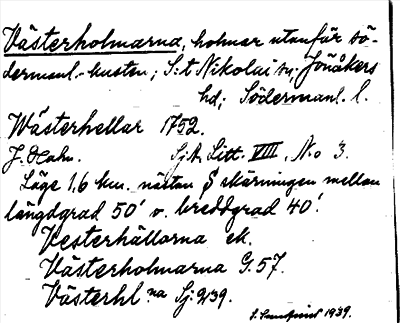 Västerholmarna, holmar utanför sö-
dermanl. kusten; S:t Nikolai sn; Jönåkers
hd; Södermanl. l.
Wästerhellar 1752.
J. Hahn. Sj.A. Litt. VIII, No 3.
Läge 1,6 km. nästan S skärningen mellan
längdgrad 50' o. breddgrad 40'.
Vesterhällarna ek.
Västerholmarna G. 57.
Västerhl na Sj. 939.
1939.